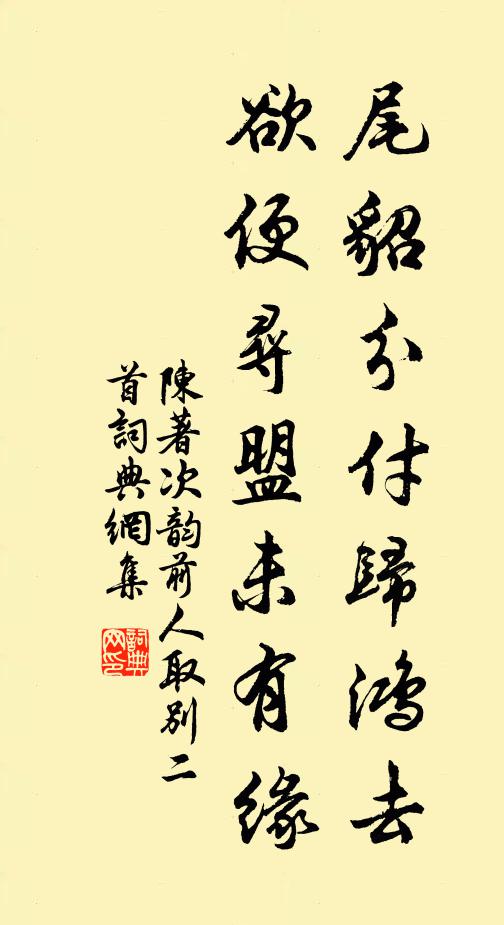 尾貂分付歸鴻去
欲便尋盟未有緣
陳著次韵前人取別二
首詞典網集
詞典
网印